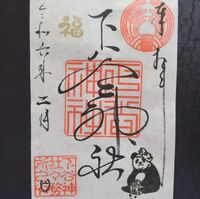 奉拝
福
下谷神社
令和六年 二月 日